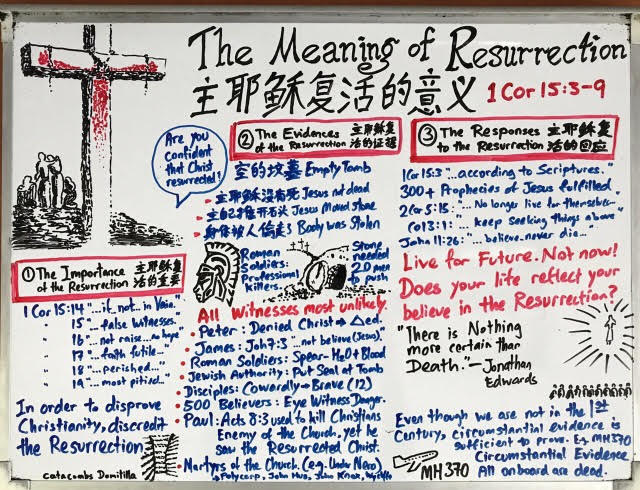 The Meaning of Resurrection
主耶稣复活的意义 1 Cor 15:3-9
Are you
confident
that Christ
resurrected?
① The Importance 主耶稣复
of the Resurrection 活的重要
1 Cor 15:14 "...if not...in Vain."
" 15 "...false witnesses."
" 16 "not raise...no hope"
" 17 "...faith futile..."
" 18 "...perished..."
" 19 "...most pitied..."
In order to disprove
Christianity, discredit
the Resurrection
Catacombs Domitilla
② The Evidences 主耶稣复
of the Resurrection 活的证据
空的坟墓 Empty Tomb
主耶稣没有死 Jesus not dead
主自己推开石头 Jesus Moved Stone
身体被人偷走了 Body was Stolen
Roman
Soldiers:
Professional
killers.
Stone
needed
20 men
to push
All Witnesses most unlikely.
Peter: Denied Christ → Δed.
James: Joh 7:3 "...not believe (Jesus)."
Roman Soldiers: Spear-H2O + Blood
Jewish Authority: Put Seal at Tomb
Disciples: Cowardly → Brave (12)
500 Believers: Eye Witness Danger.
Paul: Acts 8:3 used to kill Christians
Enemy of the Church, yet he
saw the Resurrected Christ.
Martyrs of the Church. (e.g. Under Nero)
Polycarp, John Hus, John Knox, Wycliffe
③ The Responses 主耶稣复
to the Resurrection 活的回应
1 Cor 15:3 "...according to Scriptures."
300+ Prophecies of Jesus fulfilled
2 Cor 5:15 "...No longer live for themselves-
Col 3:1: "... keep seeking things above"
John 11:26: "...believe..never die..."
Live for Future. Not now!
Does your life reflect your
believe in the Resurrection?
"There is Nothing
more certain than
Death." - Jonathan
Edwards
Even though we are not in the 1st
Century, circumstantial evidence is
sufficient to prove. Eg. MH370
Circumstantial Evidence
MH370 All onboard are dead.